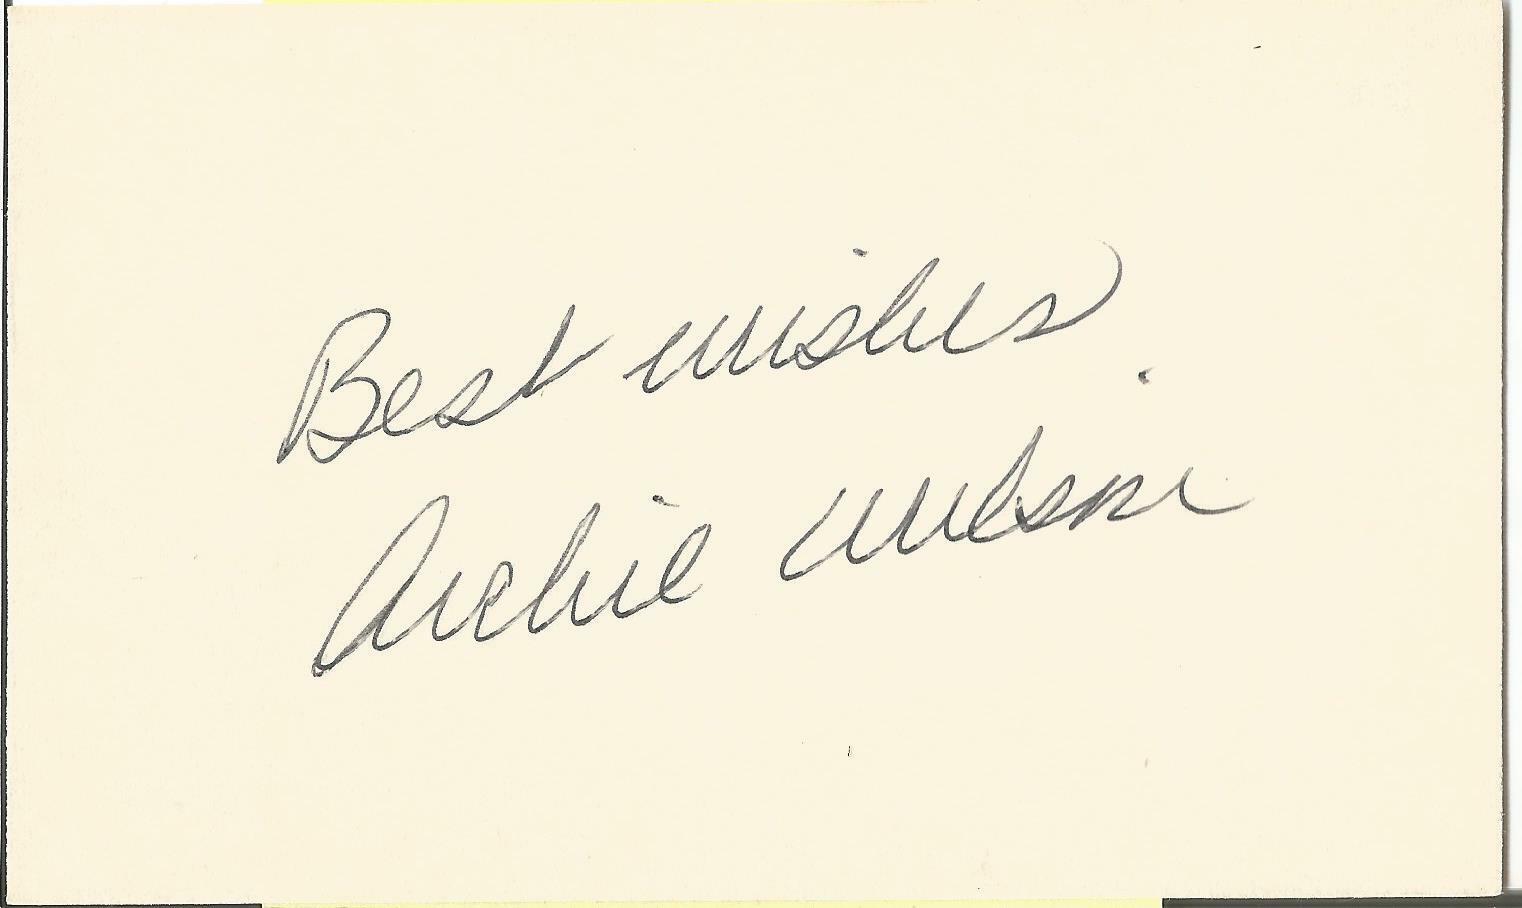 Best wishes.
Archie Wilson